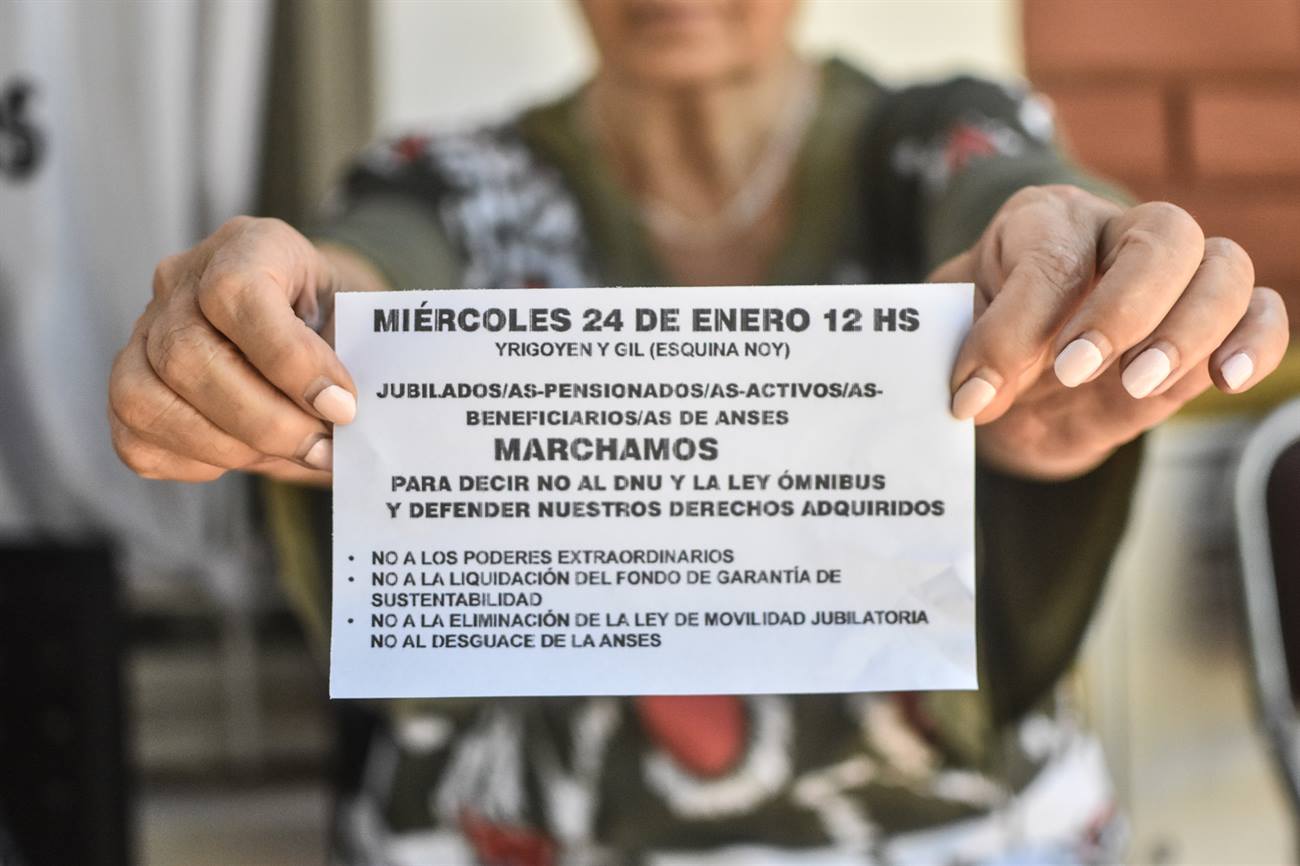 MIÉRCOLES 24 DE ENERO 12 HS
YRIGOYEN Y GIL (ESQUINA NOY)
JUBILADOS/AS-PENSIONADOS/AS-ACTIVOS/AS-
BENEFICIARIOS/AS DE ANSES
MARCHAMOS
PARA DECIR NO AL DNU Y LA LEY ÓMNIBUS
Y DEFENDER NUESTROS DERECHOS ADQUIRIDOS
• NO A LOS PODERES EXTRAORDINARIOS
• NO A LA LIQUIDACIÓN DEL FONDO DE GARANTÍA DE
SUSTENTABILIDAD
• NO A LA ELIMINACIÓN DE LA LEY DE MOVILIDAD JUBILATORIA
NO AL DESGUACE DE LA ANSES